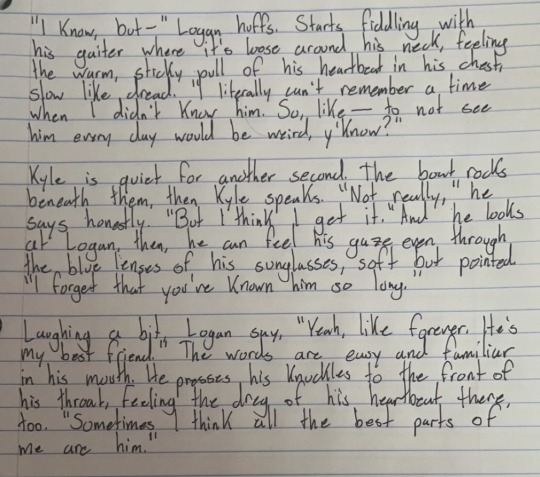 "I Know, but—" Logan huffs. Starts fiddling with
his gaiter where it's loose around his neck, feeling
the warm, sticky pull of his heartbeat in his chest,
slow like dread. "I literally can't remember a time
when I didn't Know him. So, like— to not see
him every day would be weird, y'Know?"
Kyle is quiet for another second. The boat rocks
beneath them, then Kyle speaks. "Not really," he
says honestly. "But I think I get it." And he looks
at Logan, then, he can feel his gaze even through
the blue lenses of his sunglasses, soft but pointed.
"I forget that you've Known him so long."
Laughing a bit, Logan say, "Yeah, like forever. He's
my best friend." The words are easy and familiar
in his mouth. He presses his Knuckles to the front of
his throat, feeling the drag of his heartbeat there,
too. "Sometimes I think all the best parts of
me are him."